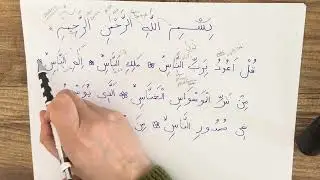 بِسْمِ اللَّهِ الرَّحْمٰنِ الرَّحِيمِ
قُلْ اَعُوذُ بِرَبِّ النَّاسِ مَلِكِ النَّاسِ اِلٰهِ النَّاسِ
مِنْ شَرِّ الْوَسْوَاسِ الْخَنَّاسِ اَلَّذِى
صُدُورِ النَّاسِ مِنَ